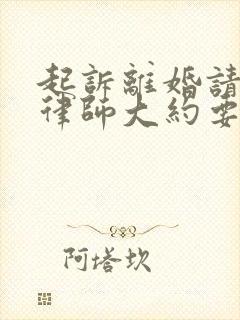 起訴離婚請
律師大約要
阿塔坎